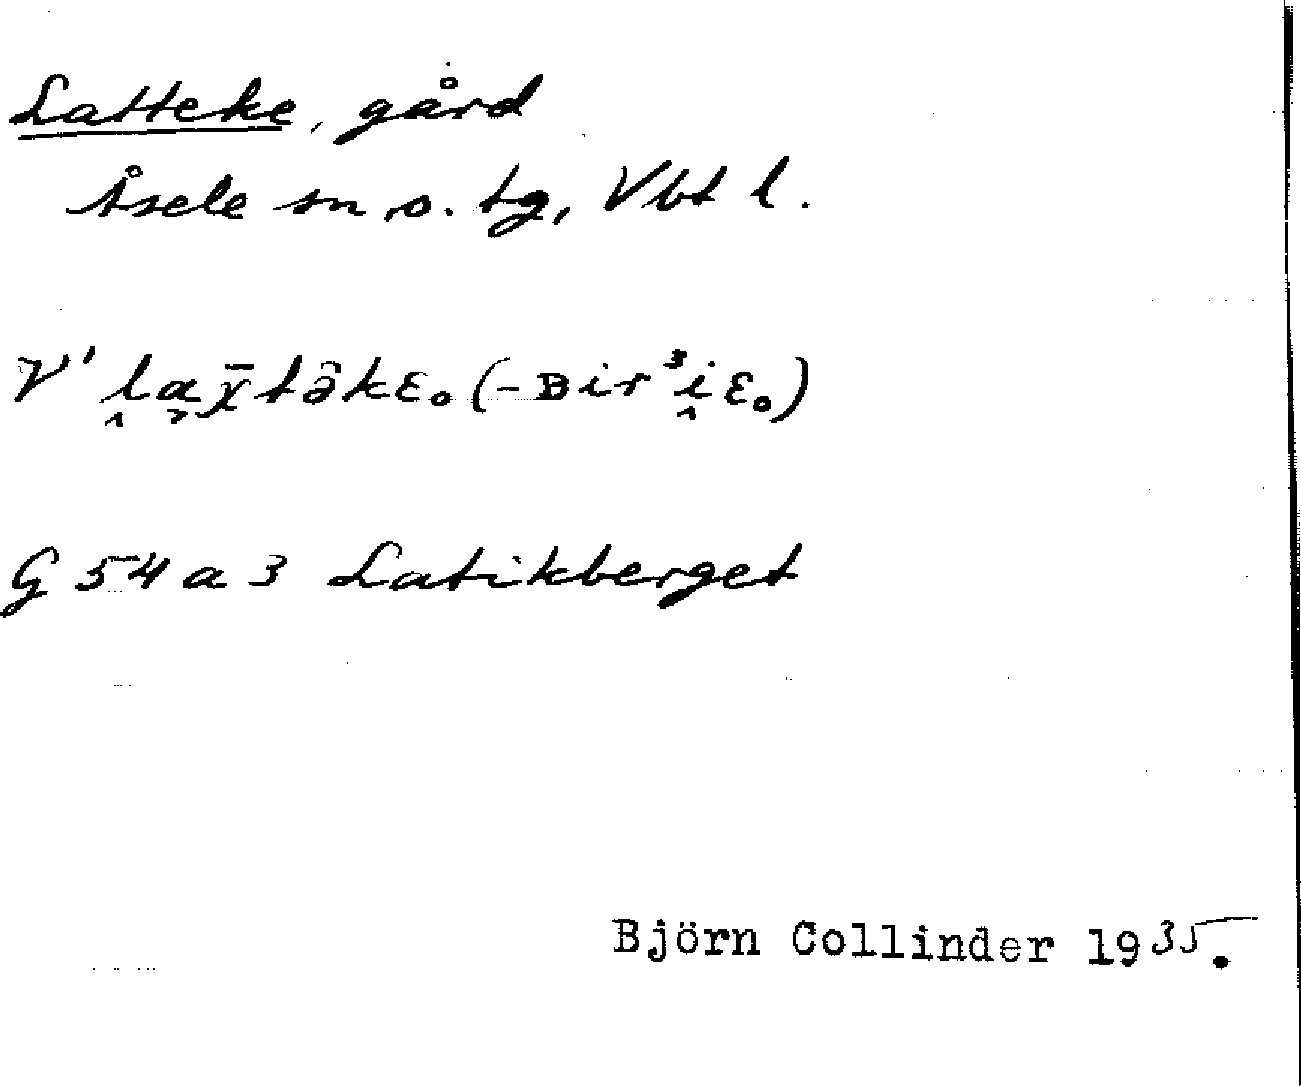 Latteke, gård
Åsele sn o. tg, Vbt l.
V' ḽa̬χ̄tə̑kɛ₀ (-ʙir³i̭ɛ₀)
G 54 a 3 Latikberget
Björn Collinder 1935.